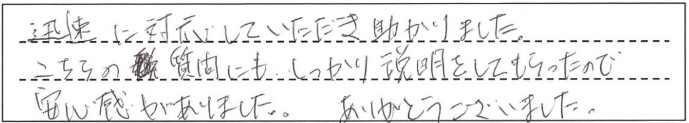 迅速に対応していただき助かりました。
こちらの質問にも、しっかり説明をしてもらったので
安心感がありました。 ありがとうございました。